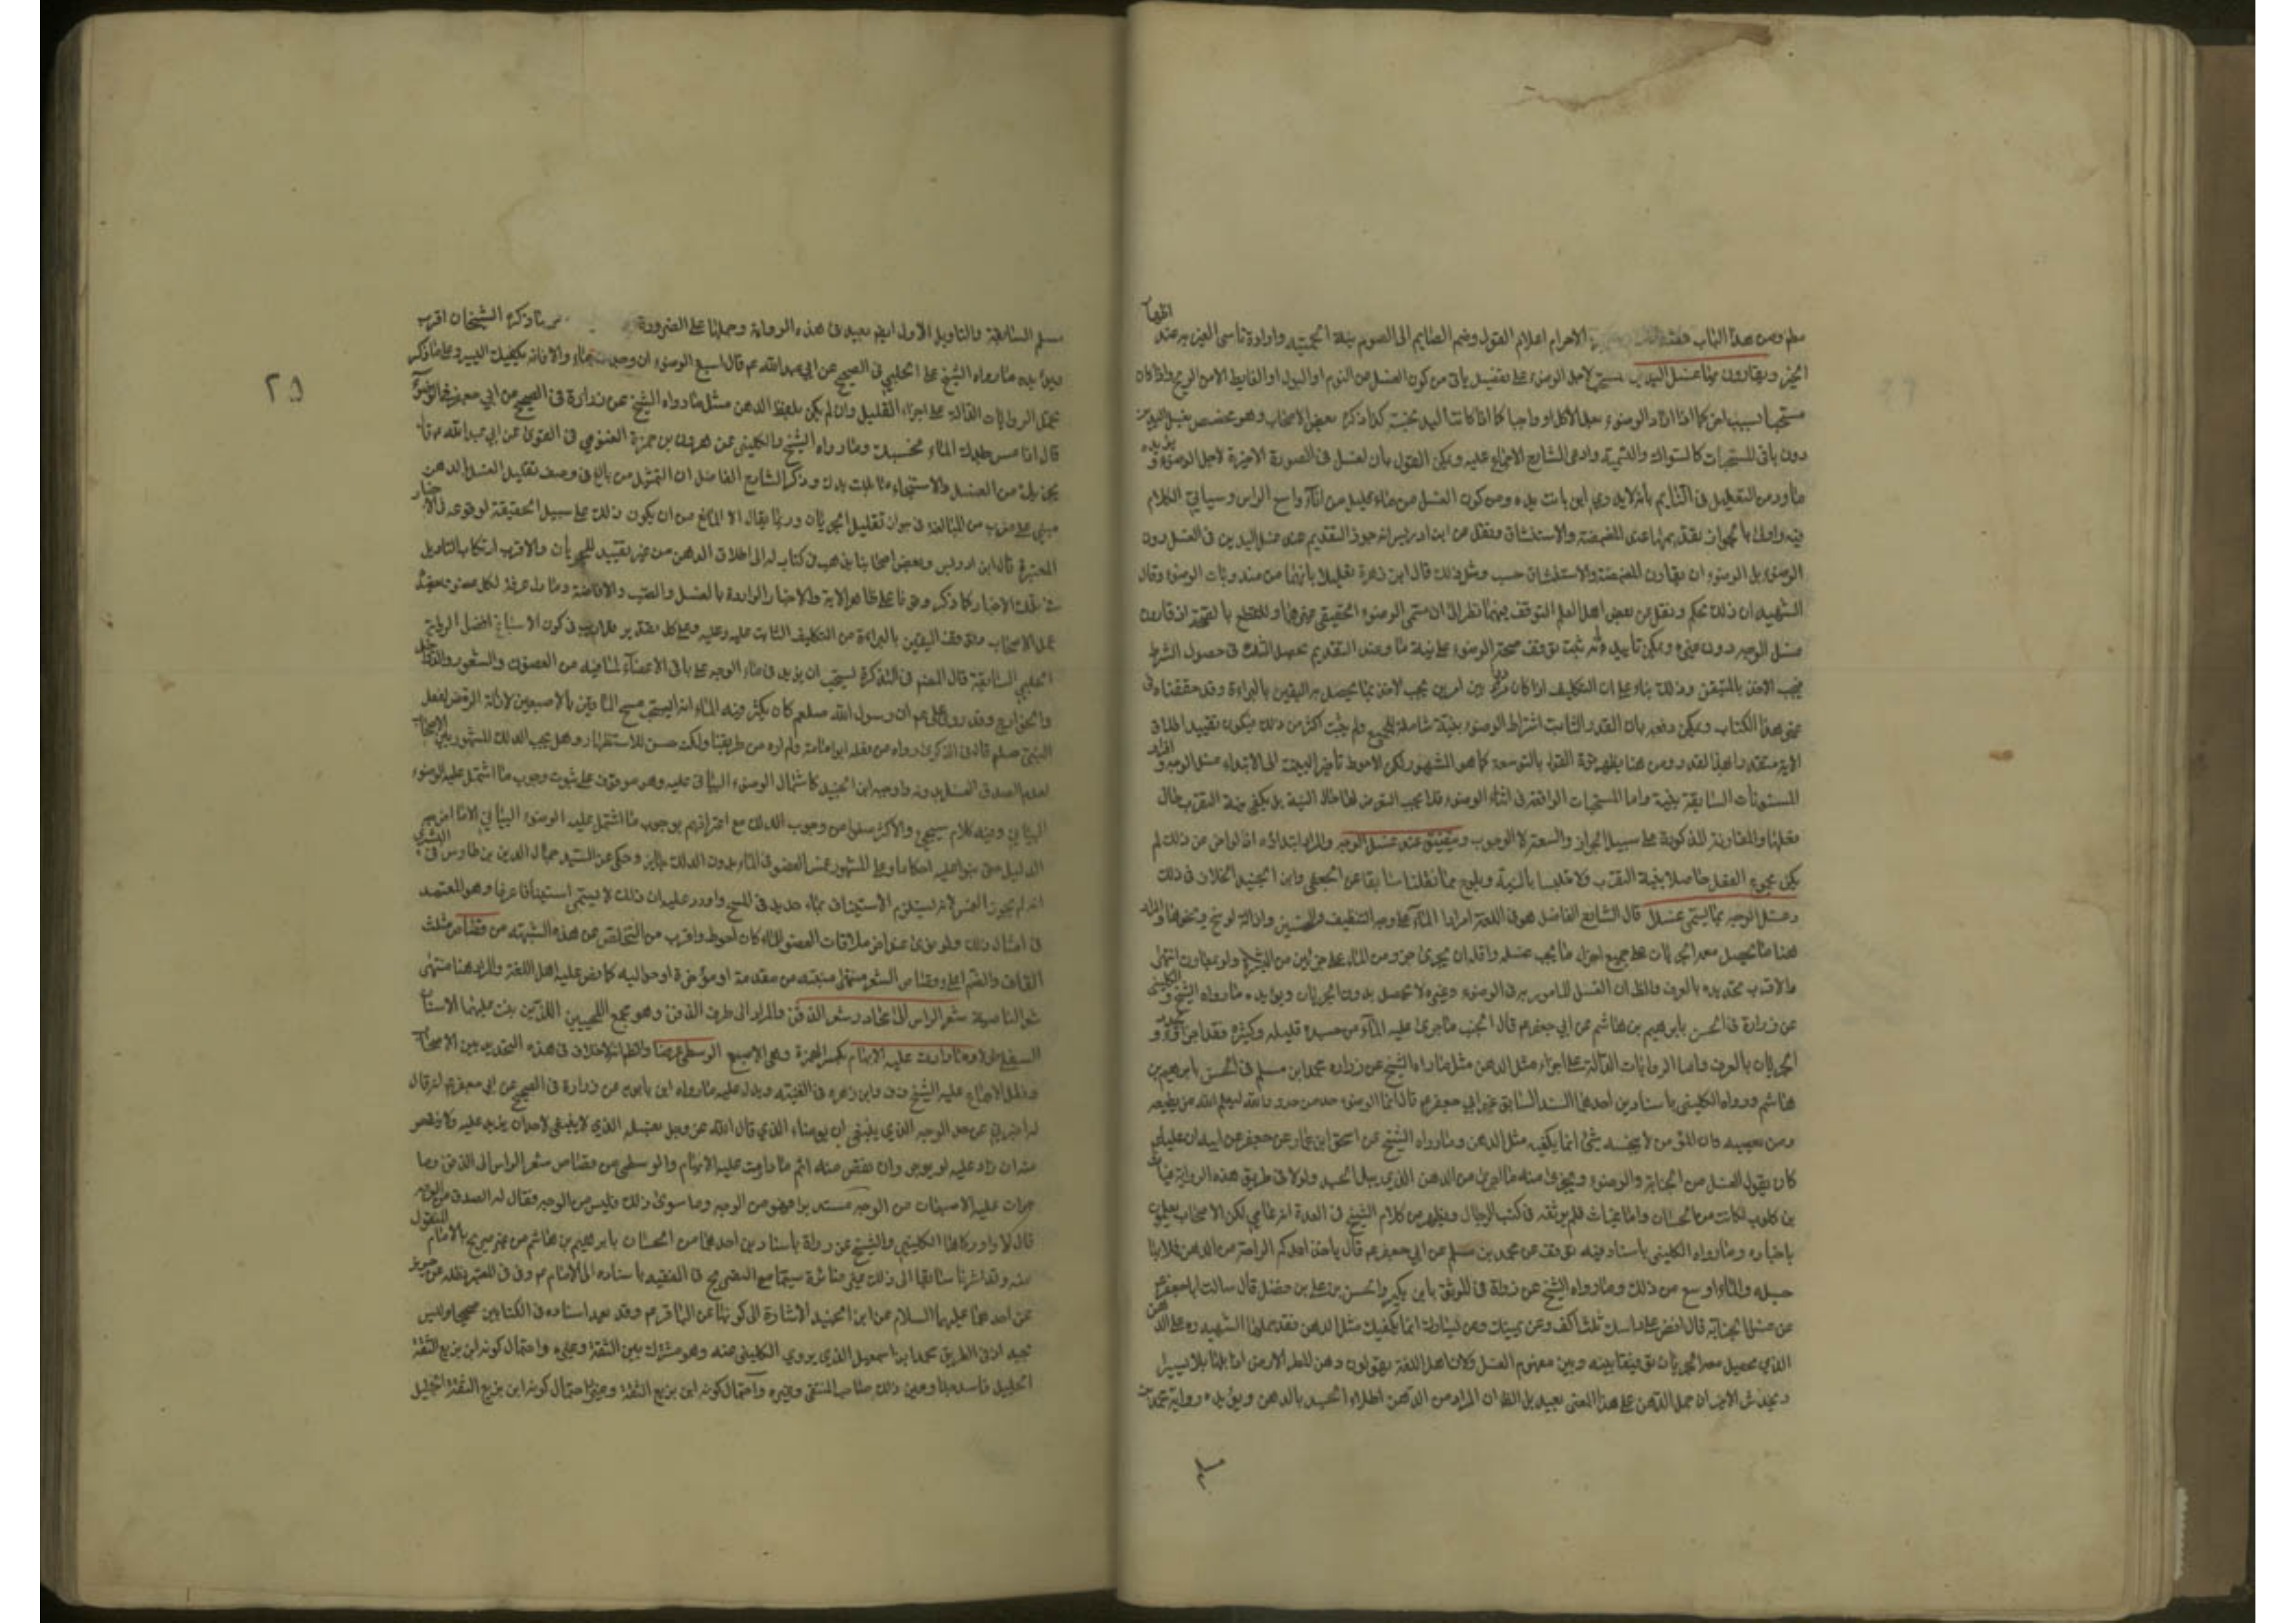 مطلوب من هذا الباب الاحرام اعلام القول وضم الصايم الى الصوم نية الحمية وارادة تاسى الغير به عند
الخير ويقارون بها غسل اليدين لاجل الوضوء على تفصيل ياتى من كون الغسل من النوم او البول او الغايط لا من الريح واذا كان
مستحبا لسبب اخر كما اذا اراد الوضوء بعد الاكل او واجبا كما اذا كانتا اليد نجسة كذا ذكره بعض الاصحاب وهو مخصص بغسل اليدين
دون باقى المستحبات كالسواك والتسمية وادعى الشارع الاجماع عليه ويمكن القول بان الغسل فى الصورة الاخيرة لاجل الوضوء
ما ورد من التعليل فى النايم بانه لا يدرى اين باتت يده ومن كون الغسل من ماء قليل من اناء واسع الراس وسياتى الكلام
فيه واولى بالجواز تقديمها عند المضمضة والاستنشاق ونقل عن ابن ادريس انه جوز التقديم عند غسل اليدين فى الغسل دون
الوضوء بل الوضوء ان يقارن المضمضة والاستنشاق حسب ومثل ذلك قال ابن زهرة تعليلا بانهما من مندوبات الوضوء وقال
الشهيد ان ذلك تحكم ونقل عن بعض اهل العلم التوقف بينهما نظرا الى ان مسمى الوضوء الحقيقى غيرهما وللقطع بالصحة اذا قارن
غسل الوجه دون غيره ويمكن تاييده بانه ثبت توقف صحة الوضوء على نية ما وعند التقديم يحصل الشك فى حصول الشرط
فيجب الاخذ بالمتيقن وذلك بناء على ان التكليف اذا كان بين امرين يجب الاخذ بما يحصل به اليقين بالبراءة وقد حققناه فى
غير هذا الكتاب ويمكن دفعه بان القدر الثابت اشتراط الوضوء بنية شاملة للجميع ولم يثبت اكثر من ذلك فيكون تقييد اطلاق
الاية مقتصرا بهذا القدر ومن هنا يظهر قوة القول بالتوسعة كما هو المشهور لكن الاحوط تاخير النية الى الابتداء بغسل الوجه
المسنونات السابقة بنية واما المستحبات الواقعة فى اثناء الوضوء فلا يجب التعرض لها حال النية بل يكفى نية التقرب حال
فعلها والمقارنة المذكورة على سبيل الجواز والسعة لا الوجوب ويتضيق عند غسل الوجه والمراد ابتداؤه اذ لو اخر عن ذلك لم
يكن مجموع الفعل حاصلا بنية التقرب ولا متلبسا بالنية ويلوح مما نقلنا سابقا عن الجعفى وابن الجنيد الخلاف فى ذلك
وغسل الوجه بما يسمى غسلا قال الشارع الفاضل هو فى اللغة امرار الماء على وجه التنظيف والتحسين وازالة الوسخ ونحوها والمراد
هنا ما يحصل معه الجريان على جميع اجزاء ما يجب غسله واقله ان يجرى جزو من الماء على جزئين من البشرة ولو بمعاون انتهى
والاقرب تحديده بالعرف والظ ان الغسل المامور به فى الوضوء وغيره لا يحصل بدون الجريان ويؤيده ما رواه الشيخ والكلينى
عن زرارة فى الحسن بابرهيم بن هاشم عن ابى جعفر ع قال الجنب ما جرى عليه الماء من جسده قليله وكثيره فقد اجزاه و
الجريان بالعرف واما الروايات الدالة على اجزاء مثل الدهن مثل ما رواه الشيخ عن زرارة ومحمد بن مسلم فى الحسن بابرهيم بن
هاشم ورواه الكلينى باسنادين احدهما السند السابق عن ابى جعفر ع قال انما الوضوء حد من حدود الله ليعلم الله من يطيعه
ومن يعصيه وان المؤمن لا ينجسه شئ انما يكفيه مثل الدهن وما رواه الشيخ عن اسحق بن عمار عن جعفر عن ابيه ان عليا ع
كان يقول الغسل من الجنابة والوضوء ويجزى منه ما اجزى من الدهن الذى يبل الجسد ولولا فى طريق هذه الرواية غياث
بن كلوب لكانت من الحسان واما غياث فلم يوثقه فى كتب الرجال ويظهر من كلام الشيخ فى العدة انه عامى لكن الاصحاب يعملون
باخباره وما رواه الكلينى باسناد فيه توقف عن محمد بن مسلم عن ابى جعفر ع قال ياخذ احدكم الراحة من الدهن فيملا بها
جسده والماء اوسع من ذلك وما رواه الشيخ عن زرارة فى الموثق بابن بكير والحسن بن على بن فضل قال سالت ابا جعفر ع
عن غسل الجنابة قال افض على راسك ثلث اكف وعن يمينك وعن يسارك انما يكفيك مثل الدهن فقد حملها الشهيد ره على الدهن
الذى يحصل معه الجريان توفيقا بينه وبين مفهوم الغسل ولان اهل اللغة يقولون دهن المطر الارض اذا بلها بلا يسيرا
ويخدش الاخير ان حمل الدهن على هذا المعنى بعيد بل الظ ان المراد من الدهن اطلاء الجسد بالدهن ويؤيده رواية محمد بن
مسلم
٢٩
مسلم السابقة والتاويل الاول ايضا بعيد فى هذه الرواية وحملها على الضرورة ما ذكره الشيخان اقرب
ويؤيده ما رواه الشيخ عن الحلبى فى الصحيح عن ابى عبد الله ع قال اسبغ الوضوء ان وجدت ماء والا فانه يكفيك اليسير وعلى ما ذكر
يحمل الروايات الدالة على اجزاء القليل وان لم يكن بلفظ الدهن مثل ما رواه الشيخ عن زرارة فى الصحيح عن ابى جعفر ع فى الوضوء
قال اذا مس جلدك الماء فحسبك وما رواه الشيخ والكلينى عن هرون بن حمزة الغنوى فى القوى عن ابى عبد الله ع قال
يجزيك من الغسل والاستنجاء ما بلت يدك وذكر الشارع الفاضل ان التمثيل من باب فى وصف تقليل الغسل بالدهن
مبنى على ضرب من المبالغة فى جواز تقليل الجريان وربما يقال لا مانع من ان يكون ذلك على سبيل الحقيقة لوقوعه فى الاخبار
المعتبرة قال ابن ادريس وبعض اصحابنا يذهب فى كتاب له الى اطلاق الدهن من غير تقييد للجريان والاقرب ارتكاب التاويل
فى تلك الاخبار كما ذكر وقوفا على ظاهر الاية والاخبار الواردة بالغسل والصب والافاضة وما دل على غرفة لكل عضو
عمل الاصحاب وتوقف اليقين بالبراءة من التكليف الثابت عليه وعلى كل تقدير فلا ريب فى كون الاسباغ افضل لرواية
الحلبى السابقة قال المصنف فى التذكرة يستحب ان يزيد فى ماء الوجه على باقى الاعضاء لما فيه من الغضون والشعور والدواخل
والخوارج وقد روى على ع ان رسول الله صلعم كان يكثر فيه الماء انه يستحب مسح الماقين بالاصبعين لازالة الرمص لفعل
النبى صلعم قال فى الذكرى رواه من فعله ابو امامة ولم اره من طريقنا ولكنه حسن للاستظهار وهل يجب الدلك المشهور بين الاصحاب
لعدم لصدق الغسل بدونه واوجبه ابن الجنيد كاشتمال الوضوء البيانى عليه وهو موقوف على ثبوت وجوب ما اشتمل عليه الوضوء
البيانى وفيه كلام سيجئ والاكثر منعوا من وجوب الدلك مع اعترافهم بوجوب ما اشتمل عليه الوضوء البيانى الا ما اخرجه
الدليل حتى بنوا عليه احكاما وعلى المشهور غمس العضو فى الماء بدون الدلك جايز وحكى عن السيد جمال الدين بن طاوس فى البشرى
انه لم يجوز الغمس لانه يستلزم الاستيناف بماء جديد فى المسح واورد عليه ان ذلك لا يسمى استينافا عرفا وهو المعتمد
فى امثال ذلك ولو نوى عند اخر ملاقات العضو الماء كان احوط واقرب من التخلص عن هذه الشبهة من قصاص مثلث
القاف والضم اعلى وقصاص الشعر منتهى منبته من مقدمه او مؤخره او حواليه كما نص عليه اهل اللغة والمراد هنا منتهى
شعر الناصية شعر الراس الى محادر شعر الذقن والمراد الى طرف الذقن وهو مجمع اللحيين اللذين ينبت عليهما الاسنان
السفلى طولا وما دارت عليه الابهام بكسر الهمزة وهى الاصبع الوسطى عرضا والظ انه لا خلاف فى هذه التحديد بين الاصحاب
ونقل الاجماع عليه الشيخ فى ف وابن زهره فى الغنية ويدل عليه ما رواه ابن بابويه عن زرارة فى الصحيح عن ابى جعفر ع انه قال
له اخبرنى عن حد الوجه الذى ينبغى ان يوضاء الذى قال الله عز وجل فقال الذى لا ينبغى لاحد ان يزيد عليه ولا ينقص
منه ان زاد عليه لم يوجر وان نقص منه اثم ما دارت عليه الابهام والوسطى من قصاص شعر الراس الى الذقن وما
جرت عليه الاصبعان من الوجه مستديرا فهو من الوجه وما سوى ذلك فليس من الوجه فقال له الصدغ من الوجه
قال لا واوردها الكلينى والشيخ عن زرارة باسنادين احدهما من الحسان بابرهيم بن هاشم من غير تصريح بالامام المنقول
عنه وقد اشرنا سابقا الى ذلك غير ضائرة سيما مع التصريح فى الفقيه باسناده الى الامام ع وفى ف للمعتبر نقله عن حريز
عن احدهما عليهما السلام وعن ابن الجنيد الاشارة الى كونها عن الباقر ع وقد يعد اسناده فى الكتابين صحيحا وليس
بجيد اذ فى الطريق محمد بن اسمعيل الذى يروى الكلينى عنه وهو مشترك بين الثقة وغيره واحتمال كونه ابن بزيع الثقة
الجليل فاسد جدا وعين ذلك صاحب المنتقى وغيره واحتمال كونه ابن بزيع الثقة وغيره احتمال كونه ابن بزيع الثقة الجليل